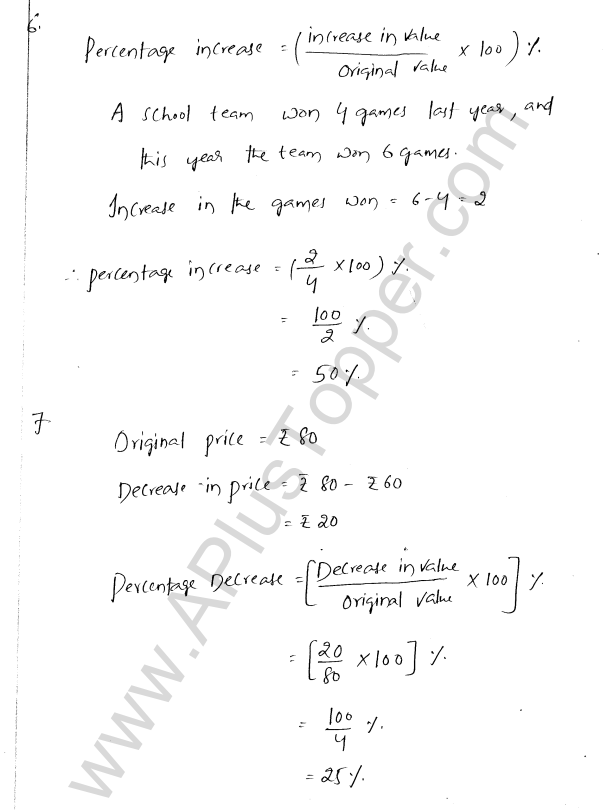 6.
Percentage increase = (increase in value / Original value × 100) %.
A school team won 4 games last year, and
this year the team won 6 games.
Increase in the games won = 6-4 = 2
∴ percentage increase = (2/4 × 100) %.
= 100/2 %.
= 50 %.
7
Original price = ₹ 80
Decrease in price = ₹ 80 - ₹ 60
= ₹ 20
Percentage Decrease = [Decrease in value / Original value × 100] %.
= [20/80 × 100] %.
= 100/4 %.
= 25 %.
www.APlusTopper.com